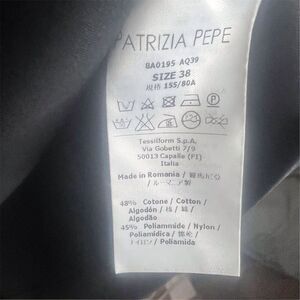 PATRIZIA PEPE
8A0195 AQ39
SIZE 38
規格 155/80A
Tessilform S.p.A.
Via Gobetti 7/9
50013 Capalle (FI)
Italia
Made in Romania /
/ ルーマニア製
48% Cotone / Cotton /
Algodón / 棉 / 綿 /
Algodão
45% Poliammide / Nylon /
Poliamídica / 锦纶 /
ナイロン / Poliamida